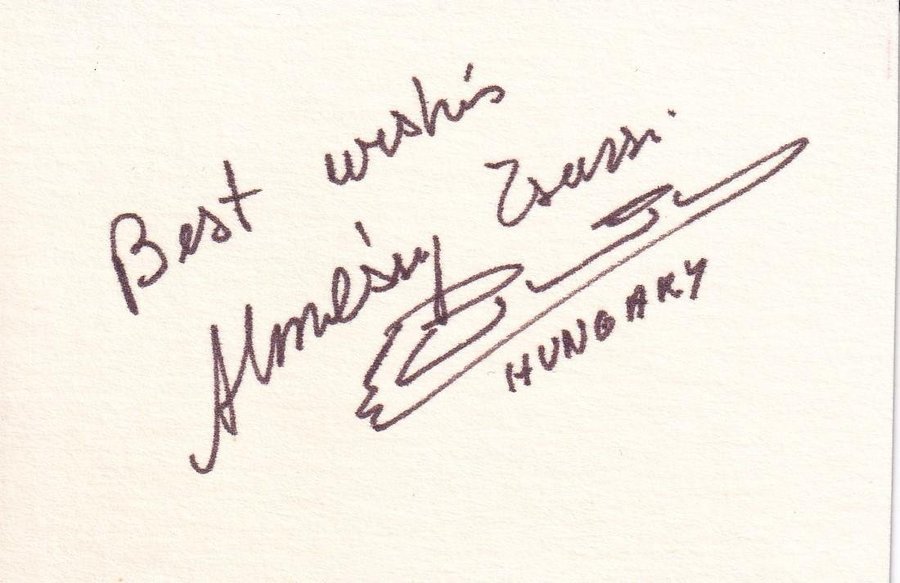 Best wishes
Almássy Zsuzsi
HUNGARY